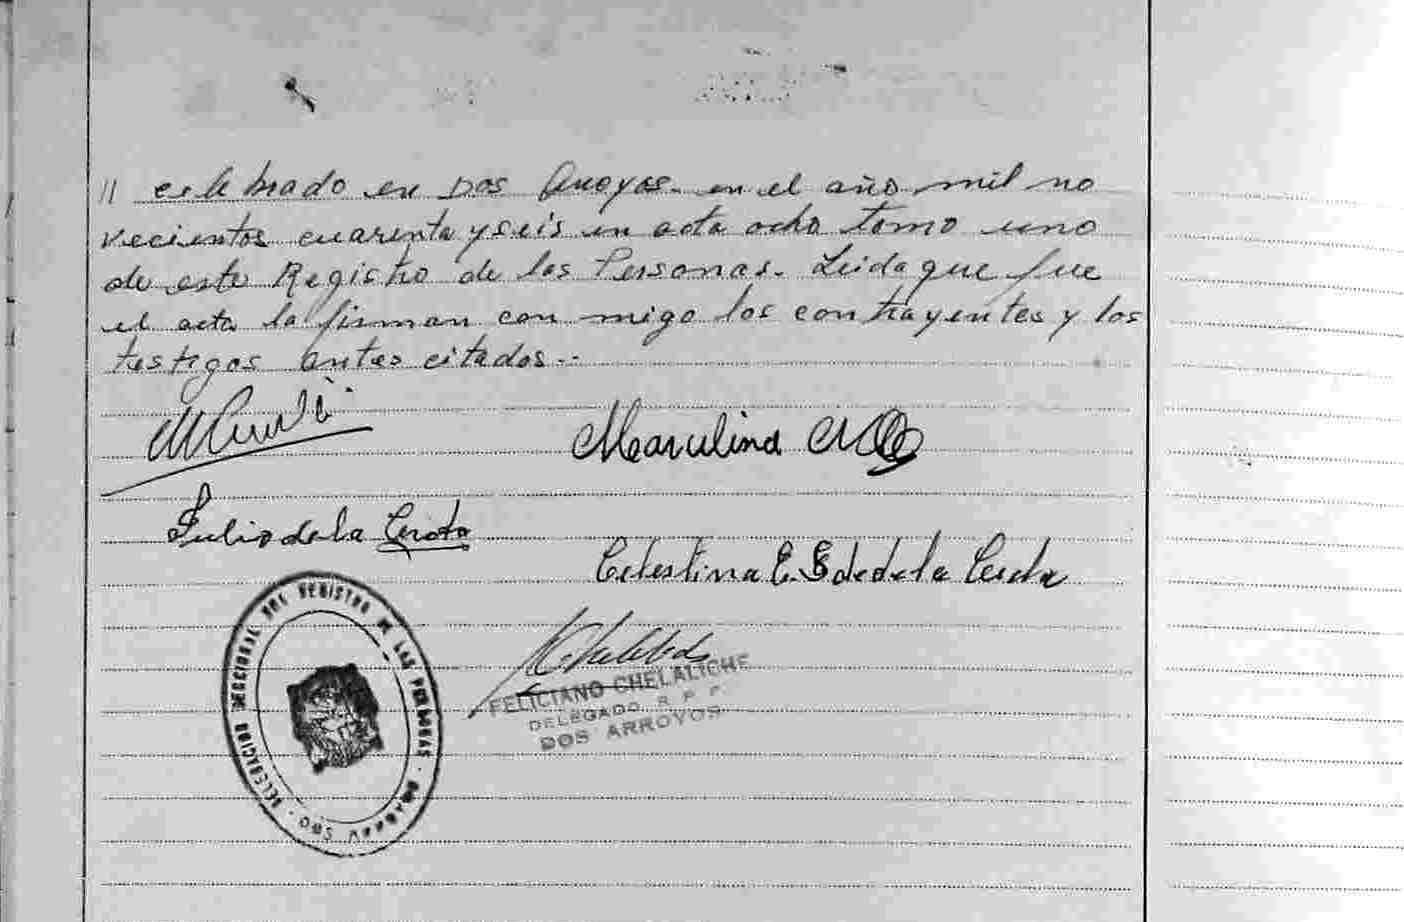 // celebrado en Dos Arroyos. en el año mil no
vecientos cuarenta y seis en acta ocho tomo uno
de este Registro de las Personas. Leida que fue
el acta la firman con migo los contrayentes y los
testigos antes citados..
Marculina
Julio de la Cerda
Celestina E. S de de la Cerda
FELICIANO CHELALICHE
DELEGADO R. P. P.
DOS ARROYOS
DELEGACION SECCIONAL DEL REGISTRO DE LAS PERSONAS · DOS ARROYOS ·